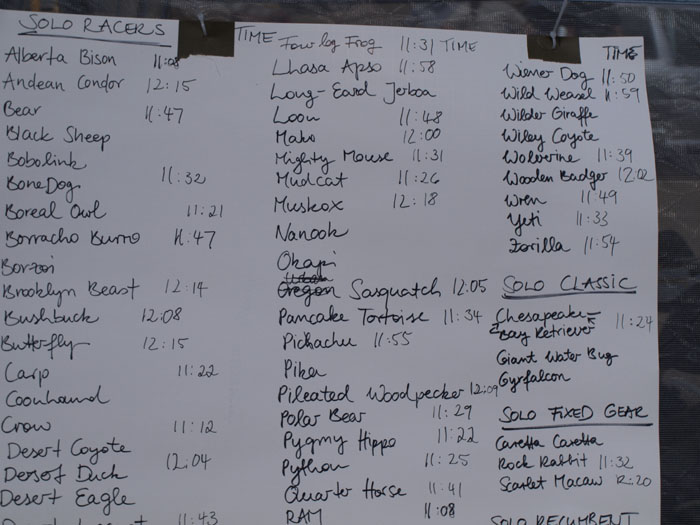 SOLO RACERS TIME
Alberta Bison 11:08
Andean Condor 12:15
Bear 11:47
Black Sheep
Bobolink
Bone Dog 11:32
Boreal Owl 11:21
Borracho Burro 11:47
Borzoi
Brooklyn Beast 12:14
Bushbuck 12:08
Butterfly 12:15
Carp 11:22
Coonhound
Crow 11:12
Desert Coyote
Desert Duck 12:04
Desert Eagle
11:43
Fow leg Frog 11:31 TIME
Lhasa Apso 11:58
Long-Eard Jerboa
Loon 11:48
Mako 12:00
Mighty Mouse 11:31
Mudcat 11:26
Muskox 12:18
Nanook
Okapi
Oregon Sasquatch 12:05
Pancake Tortoise 11:34
Pickachu 11:55
Pika
Pileated Woodpecker 12:09
Polar Bear 11:29
Pygmy Hippo 11:22
Python 11:25
Quarter Horse 11:41
RAM 11:08
TIME
Wiener Dog 11:50
Wild Weasel 11:59
Wilder Giraffe
Wiley Coyote
Wolverine 11:39
Wooden Badger 12:02
Wren 11:49
Yeti 11:33
Zorilla 11:54
SOLO CLASSIC
Chesapeake
Bay Retriever 11:24
Giant Water Bug
Gyrfalcon
SOLO FIXED GEAR
Caretta Caretta
Rock Rabbit 11:32
Scarlet Macaw 12:20
SOLO RECUMBENT